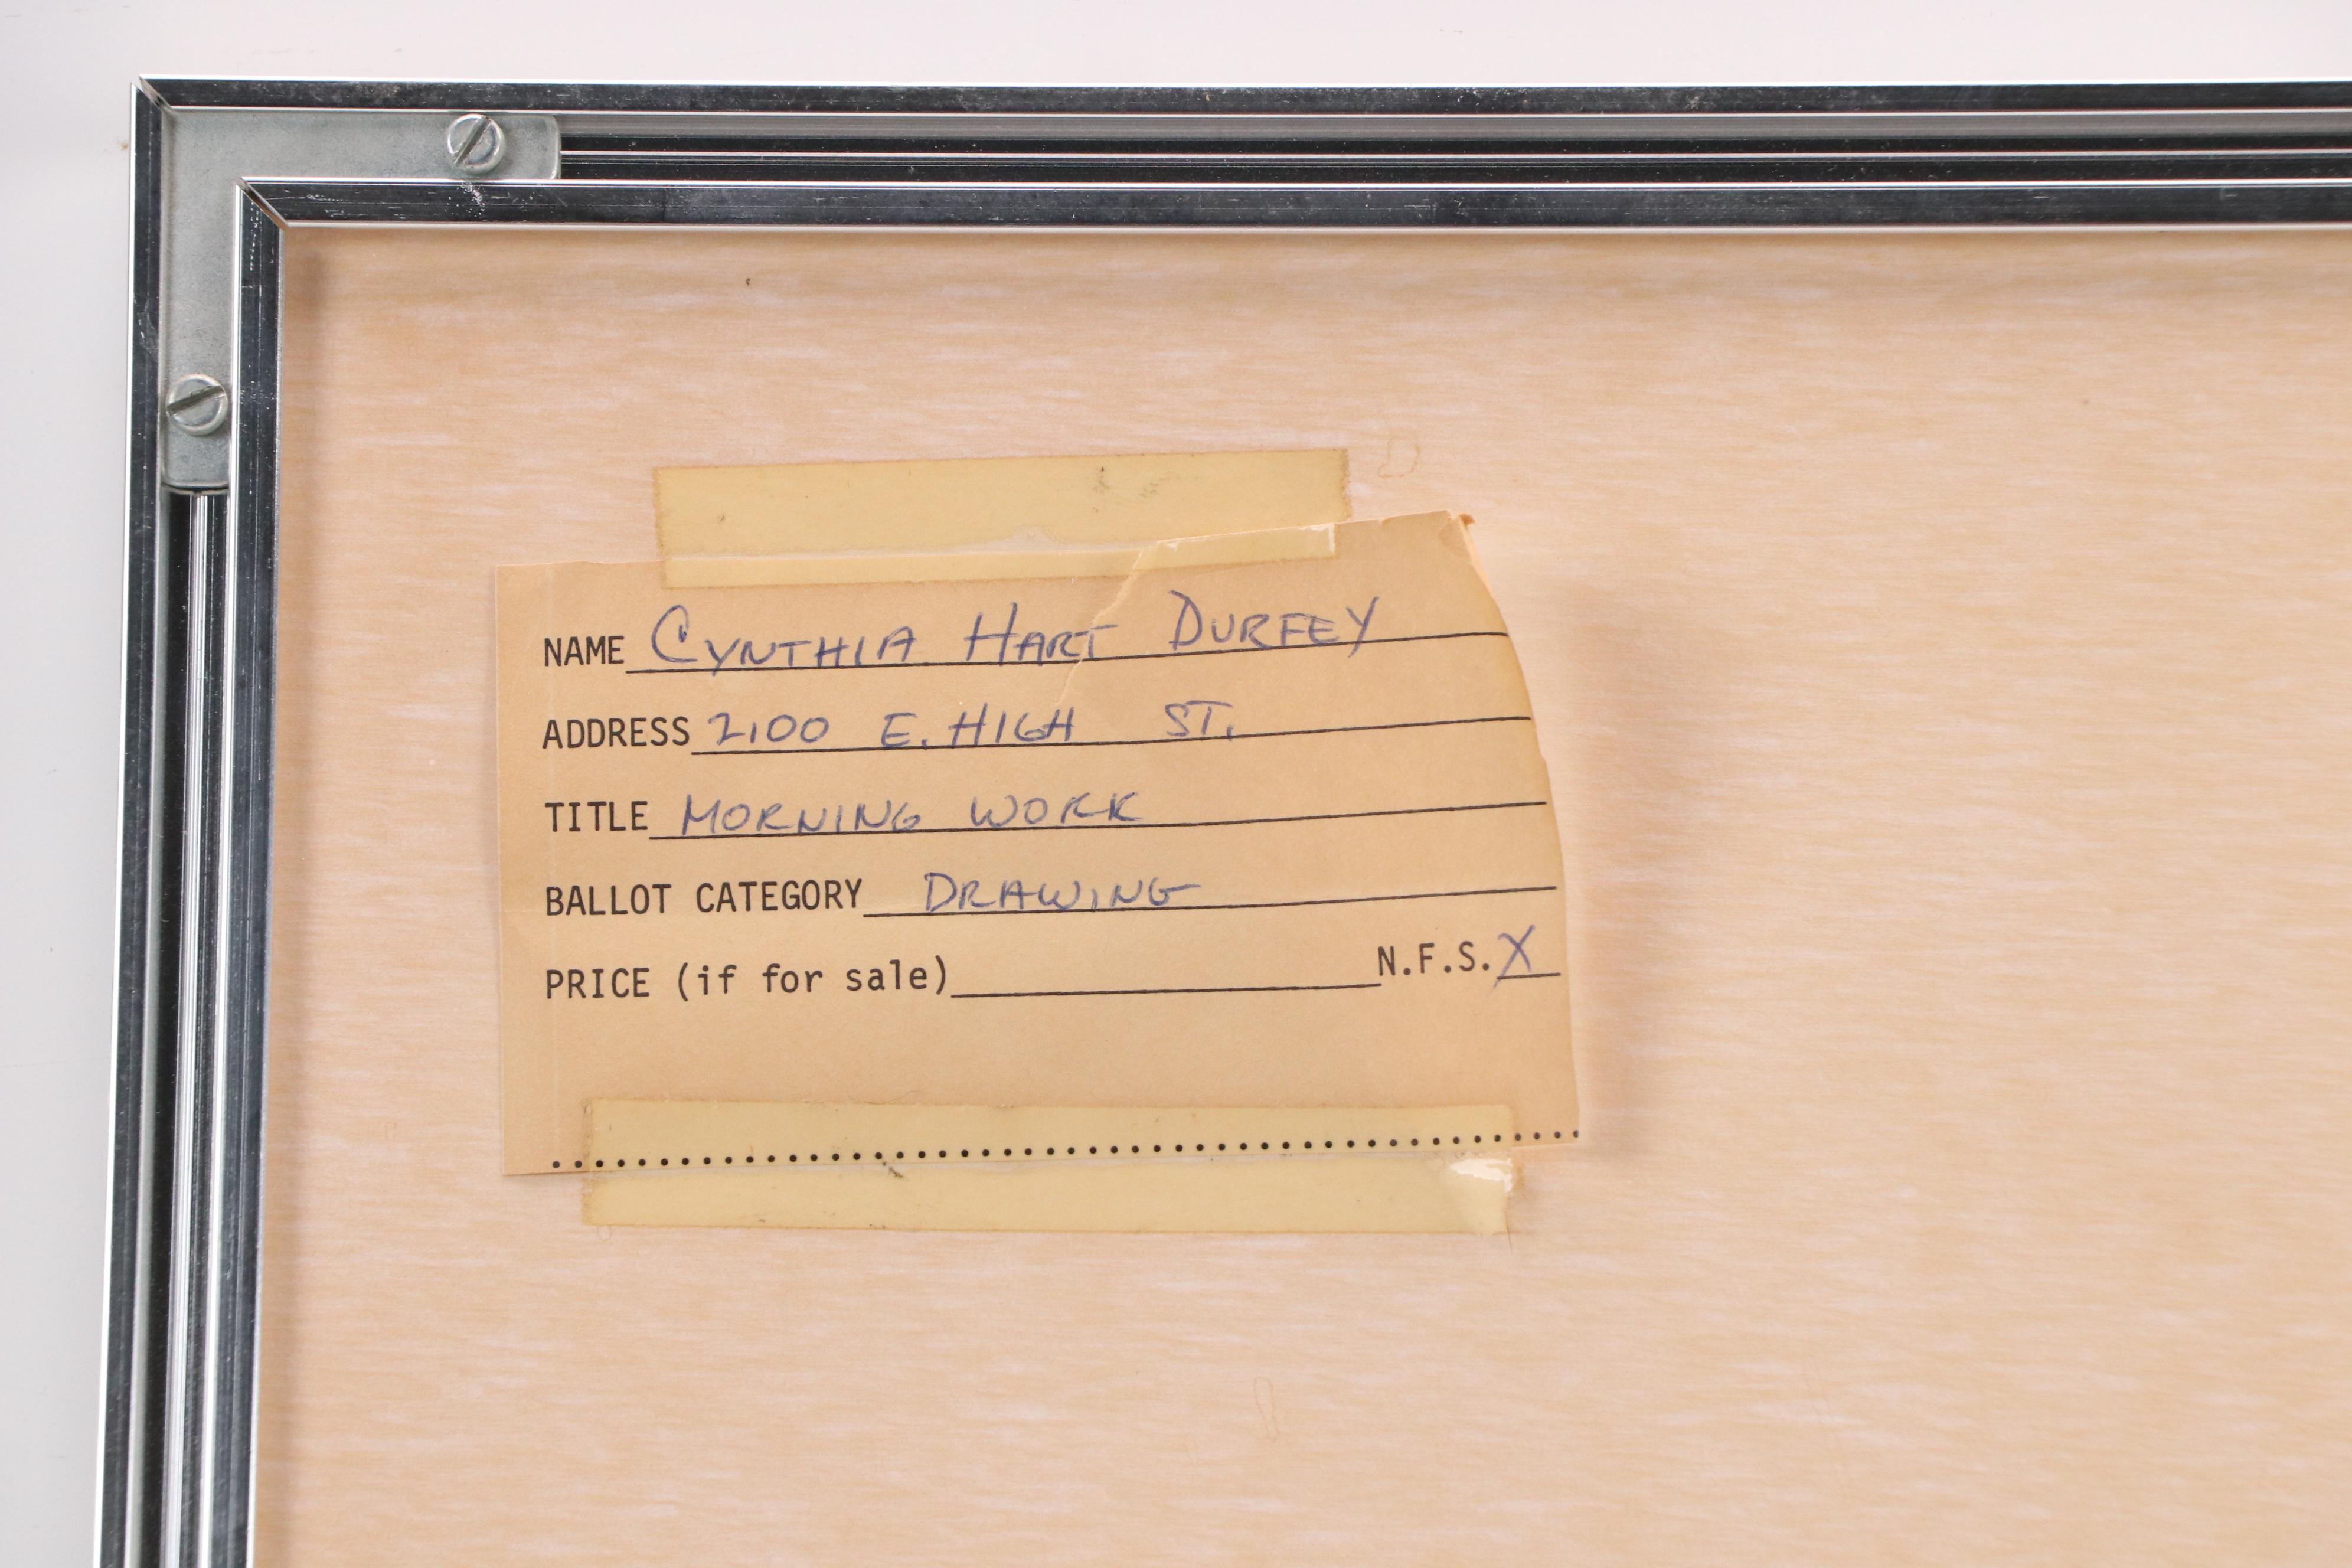 NAME CYNTHIA HART DURFEY
ADDRESS 2100 E. HIGH ST.
TITLE MORNING WORK
BALLOT CATEGORY DRAWING
PRICE (if for sale) N.F.S. X